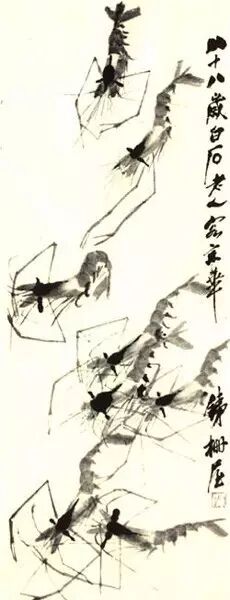 十八歲白石老人客京華
鐵柵屋